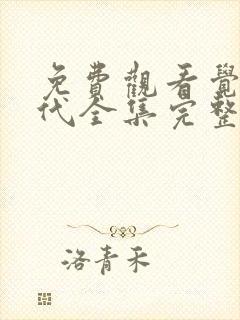 免費觀看覺
代全集完整
洛青禾